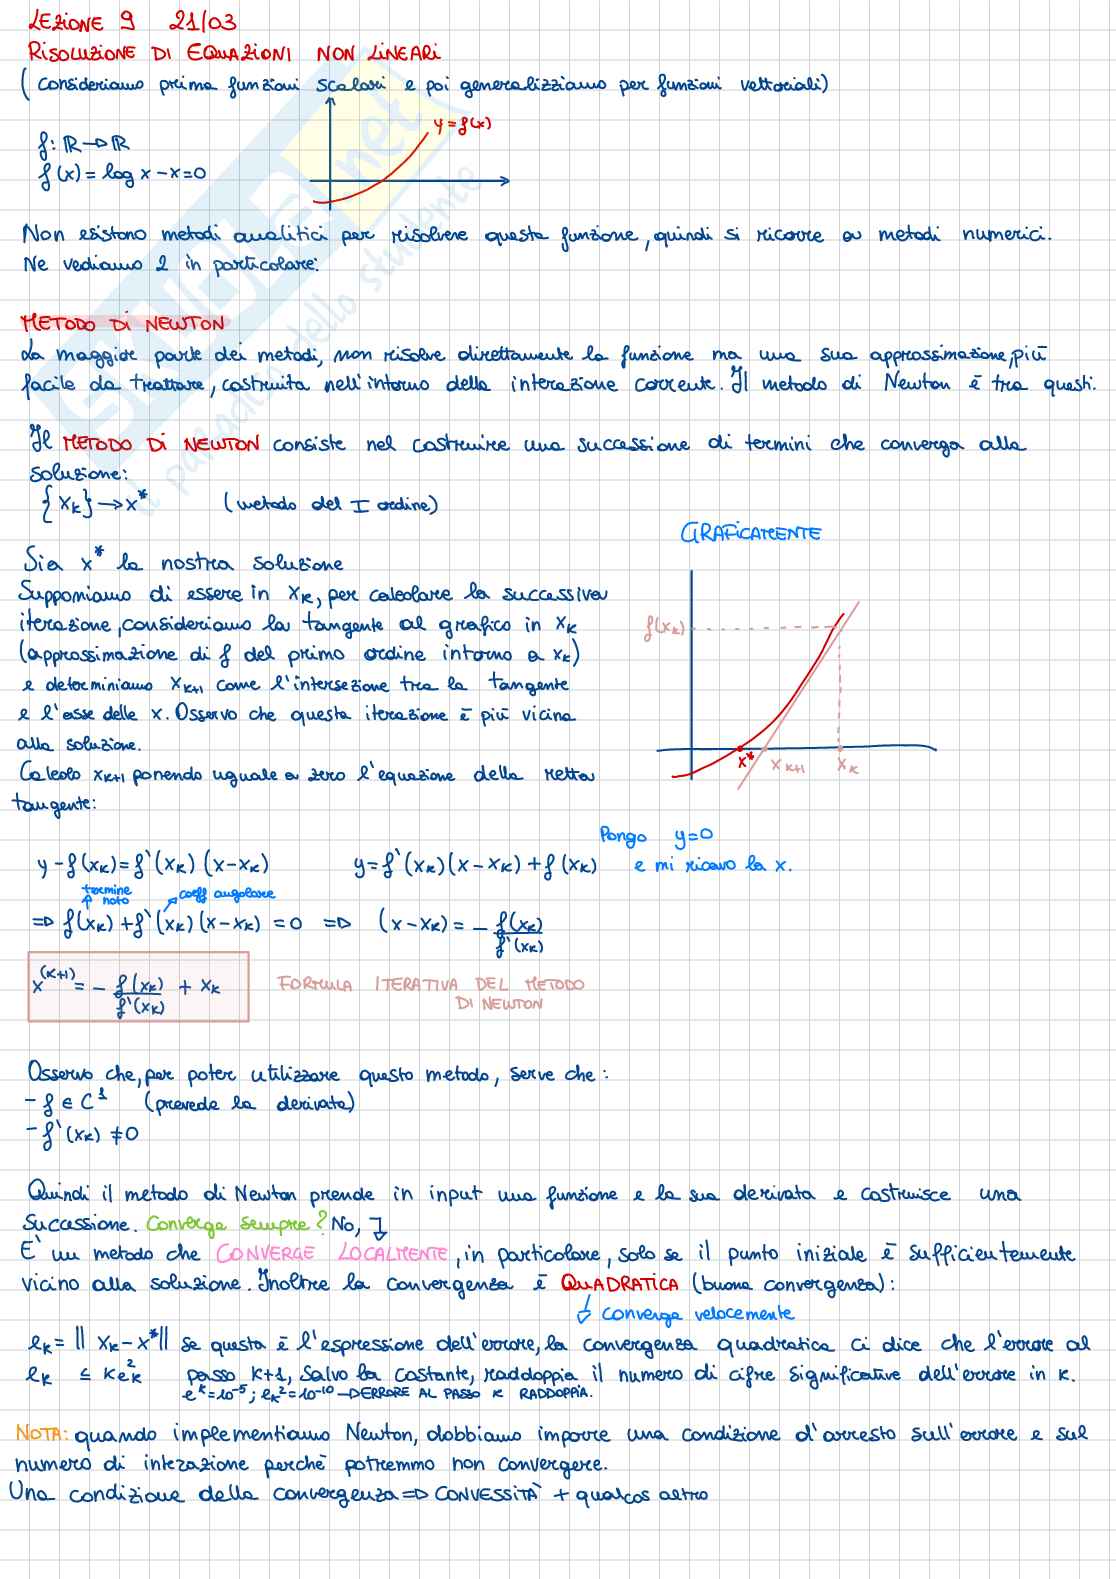 LEZIONE 9 21/03
RISOLUZIONE DI EQUAZIONI NON LINEARI
(Consideriamo prima funzioni scalari e poi generalizziamo per funzioni vettoriali)
y=f(x)
f: ℝ→ℝ
f(x) = log x -x=0
Non esistono metodi analitici per risolvere questa funzione, quindi si ricorre a metodi numerici.
Ne vediamo 2 in particolare:
METODO DI NEWTON
La maggior parte dei metodi, non risolve direttamente la funzione ma una sua approssimazione, più
facile da trattare, costruita nell'intorno della interazione corrente. Il metodo di Newton è tra questi.
Il METODO DI NEWTON consiste nel costruire una successione di termini che converga alla
soluzione:
{xₖ}→x* (metodo del I ordine)
GRAFICAMENTE
Sia x* la nostra soluzione
Supponiamo di essere in xₖ, per calcolare la successiva
iterazione, consideriamo la tangente al grafico in xₖ
(approssimazione di f del primo ordine intorno a xₖ)
e determiniamo xₖ₊₁ come l'intersezione tra la tangente
e l'asse delle x. Osservo che questa iterazione è più vicina
alla soluzione.
Calcolo xₖ₊₁ ponendo uguale a zero l'equazione della retta
tangente:
f(xₖ)
x* xₖ₊₁ xₖ
Pongo y=0
e mi ricavo la x.
y-f(xₖ)=f'(xₖ)(x-xₖ) y=f'(xₖ)(x-xₖ)+f(xₖ)
termine noto coeff angolare
⇒ f(xₖ)+f'(xₖ)(x-xₖ) = 0 ⇒ (x-xₖ) = - f(xₖ)/f'(xₖ)
x^(k+1) = - f(xₖ)/f'(xₖ) + xₖ
FORMULA ITERATIVA DEL METODO
DI NEWTON
Osservo che, per poter utilizzare questo metodo, serve che:
- f ∈ C¹ (prevede la derivata)
- f'(xₖ) ≠0
Quindi il metodo di Newton prende in input una funzione e la sua derivata e costruisce una
successione. Converge sempre? No, ↴
E' un metodo che CONVERGE LOCALMENTE, in particolare, solo se il punto iniziale è sufficientemente
vicino alla soluzione. Inoltre la convergenza è QUADRATICA (buona convergenza):
↓ Converge velocemente
eₖ= || xₖ-x*|| se questa è l'espressione dell'errore, la convergenza quadratica ci dice che l'errore al
eₖ ≤ Keₖ² passo k+1, salvo la costante, raddoppia il numero di cifre significative dell'errore in k.
eᵏ=10⁻⁵; eₖ²=10⁻¹⁰→ERRORE AL PASSO K RADDOPPIA.
NOTA: quando implementiamo Newton, dobbiamo imporre una condizione d'arresto sull'errore e sul
numero di interazione perchè potremmo non convergere.
Una condizione della convergenza ⇒ CONVESSITÀ + qualcos altro
SKUOLA.net
il paradiso dello studente